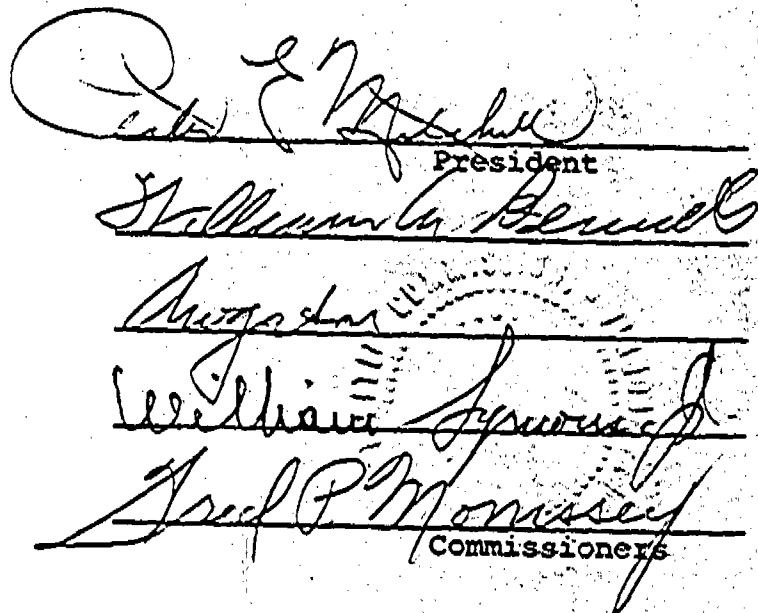 Peter E Mitchell
President
William A. Bennett
William Symons Jr.
Fred P. Morrissey
Commissioners